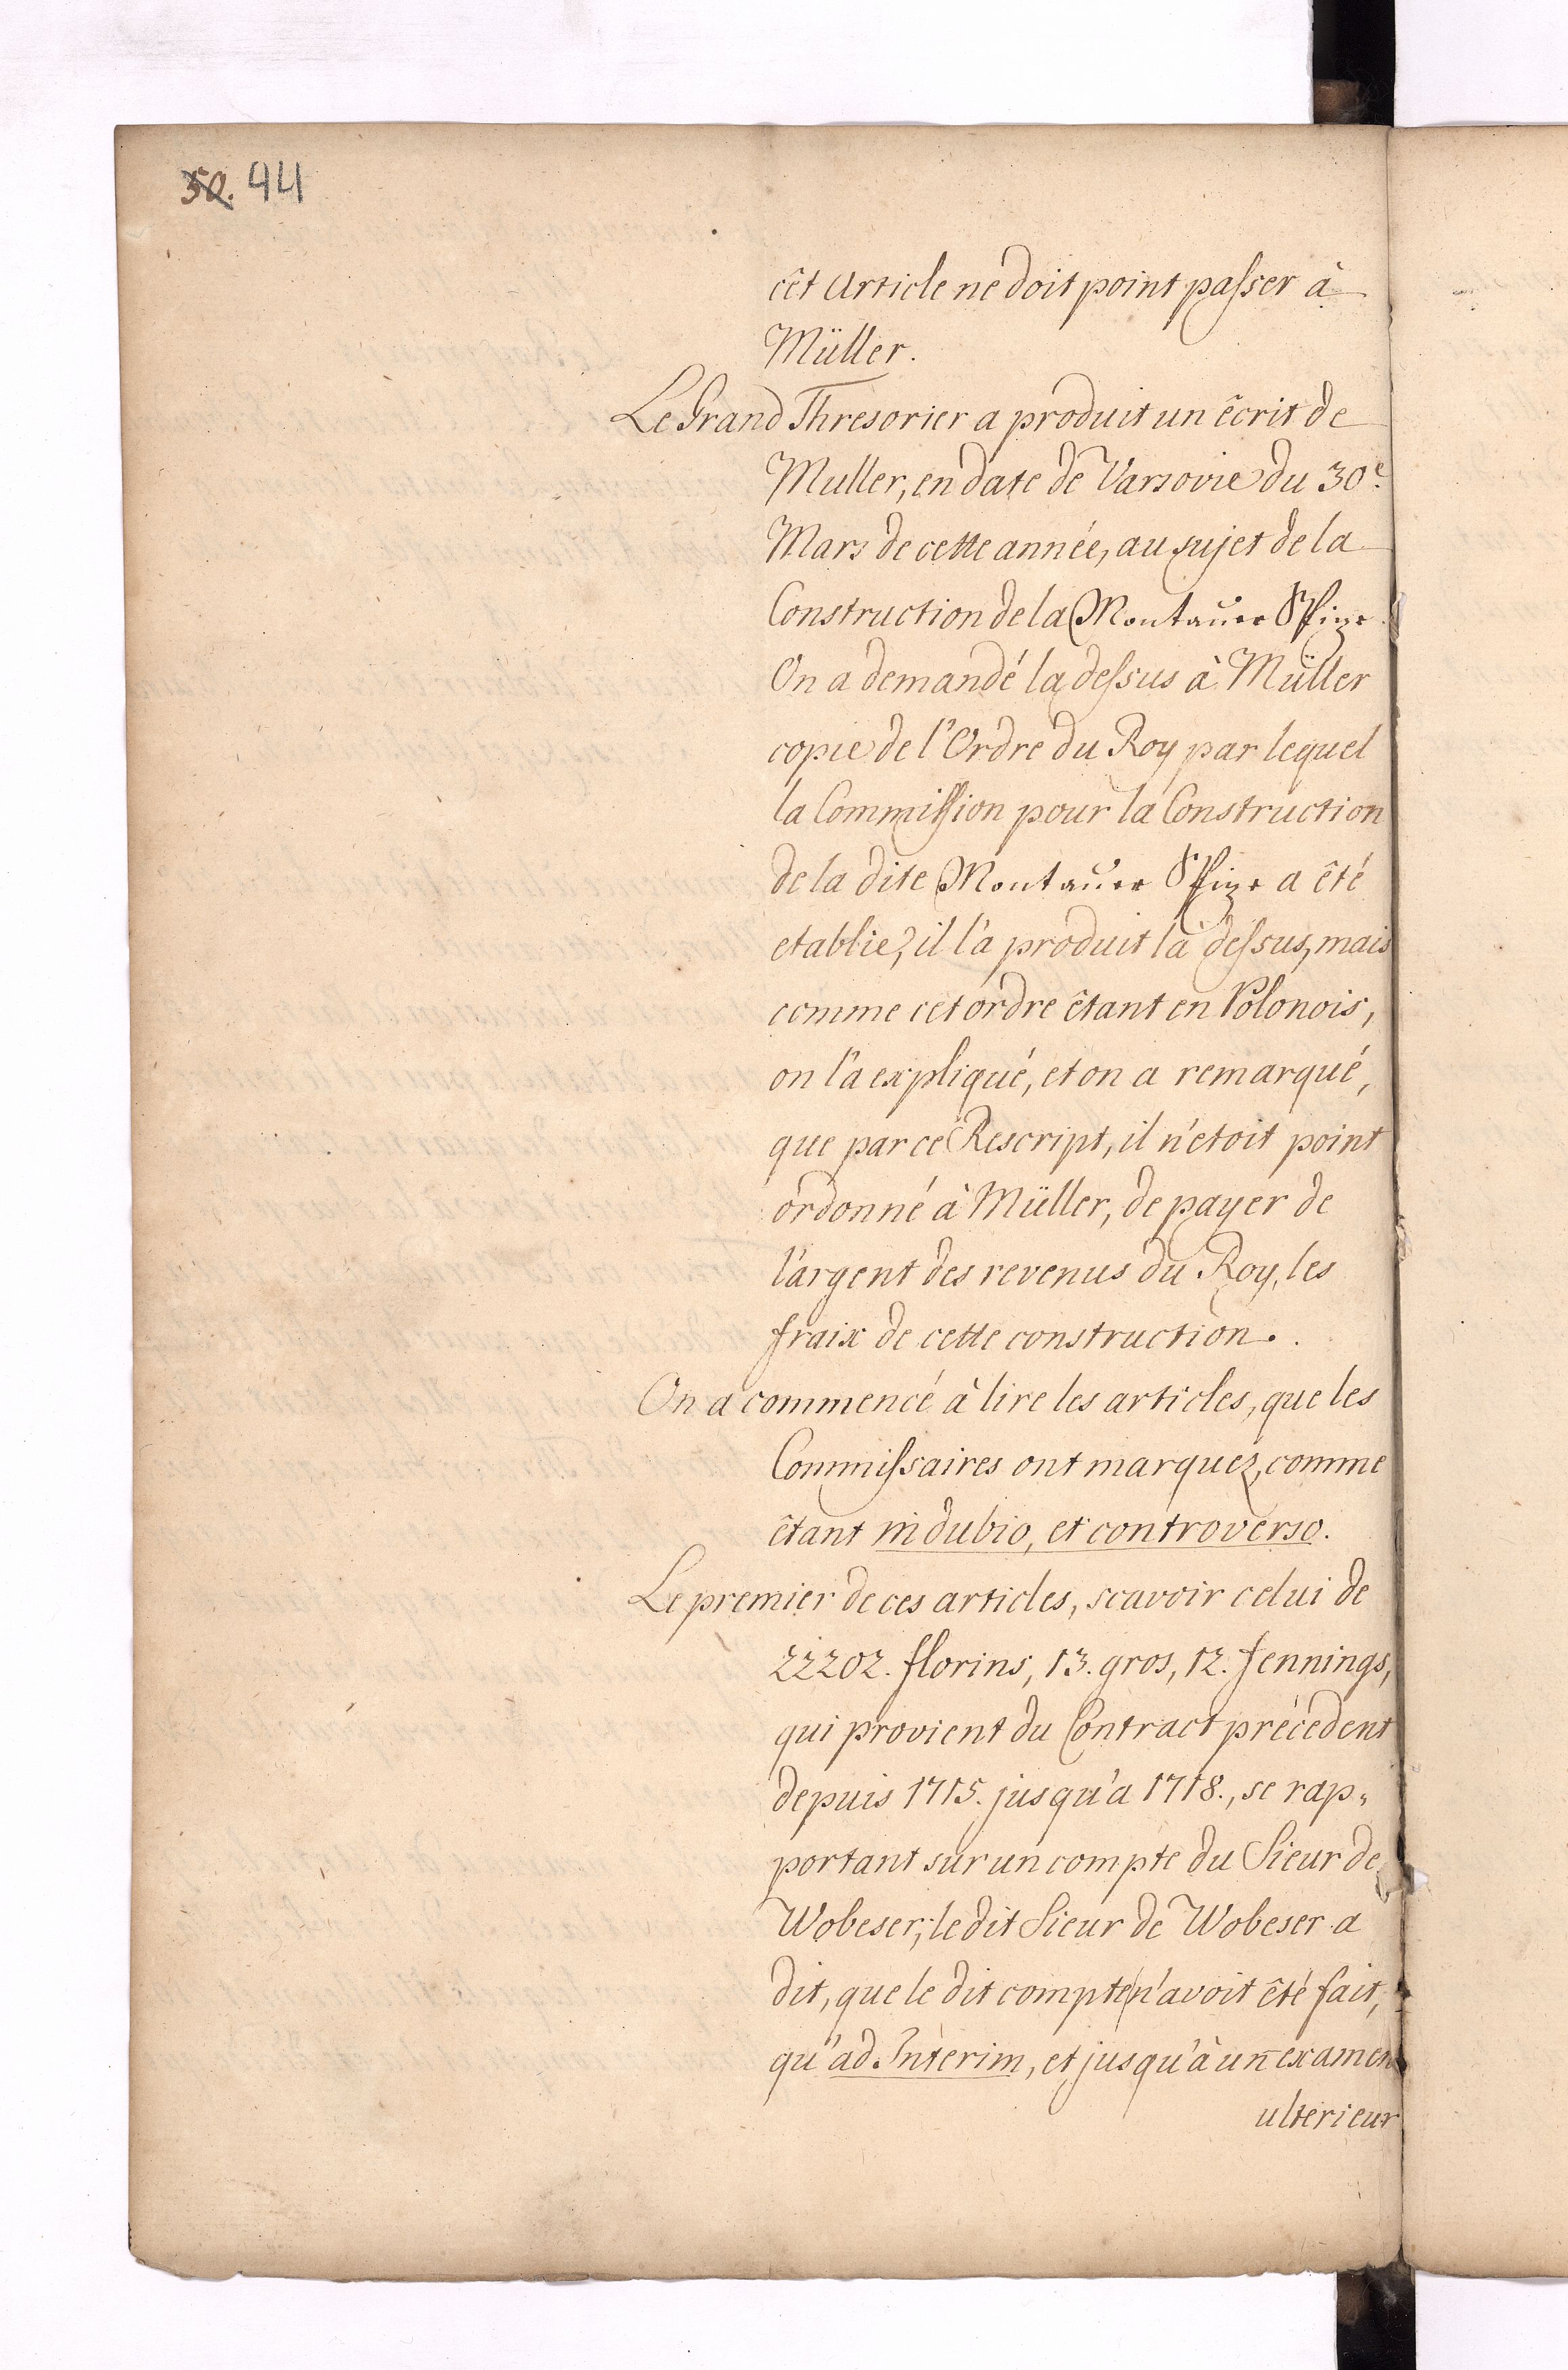 50. 94
cêt Article ne doit point passer à
Müller.
Le Grand Thresorier a produit un êcrit de
Muller, en date de Varsovie du 30.e
Mars de cette année, au sujet de la
Construction de la Montauer Spize.
On a demandé la dessus à Müller
copie de l'Ordre du Roy par lequel
la Commission pour la Construction
de la dite Montauer Spize a êté
etablie, il l'a produit là dessus, mais
comme cet ordre êtant en Polonois,
on l'a expliqué, et on a remarqué,
que par ce Rescript, il n'etoit point
ordonné à Müller, de payer de
l'argent des revenus du Roy, les
fraix de cette construction.
On a commencé à lire les articles, que les
Commissaires ont marquez, comme
êtant in dubio, et controverso.
Le premier de ces articles, scavoir celui de
22202. florins, 13. gros, 12. fennings,
qui provient du Contract précedent
depuis 1715. jusqu'a 1718., se rap„
portant sur un compte du Sieur de
Wobeser, le dit Sieur de Wobeser a
dit, que le dit compte n'avoit êté fait,
qu'ad Interim, et jusqu'à un examen
ulterieur